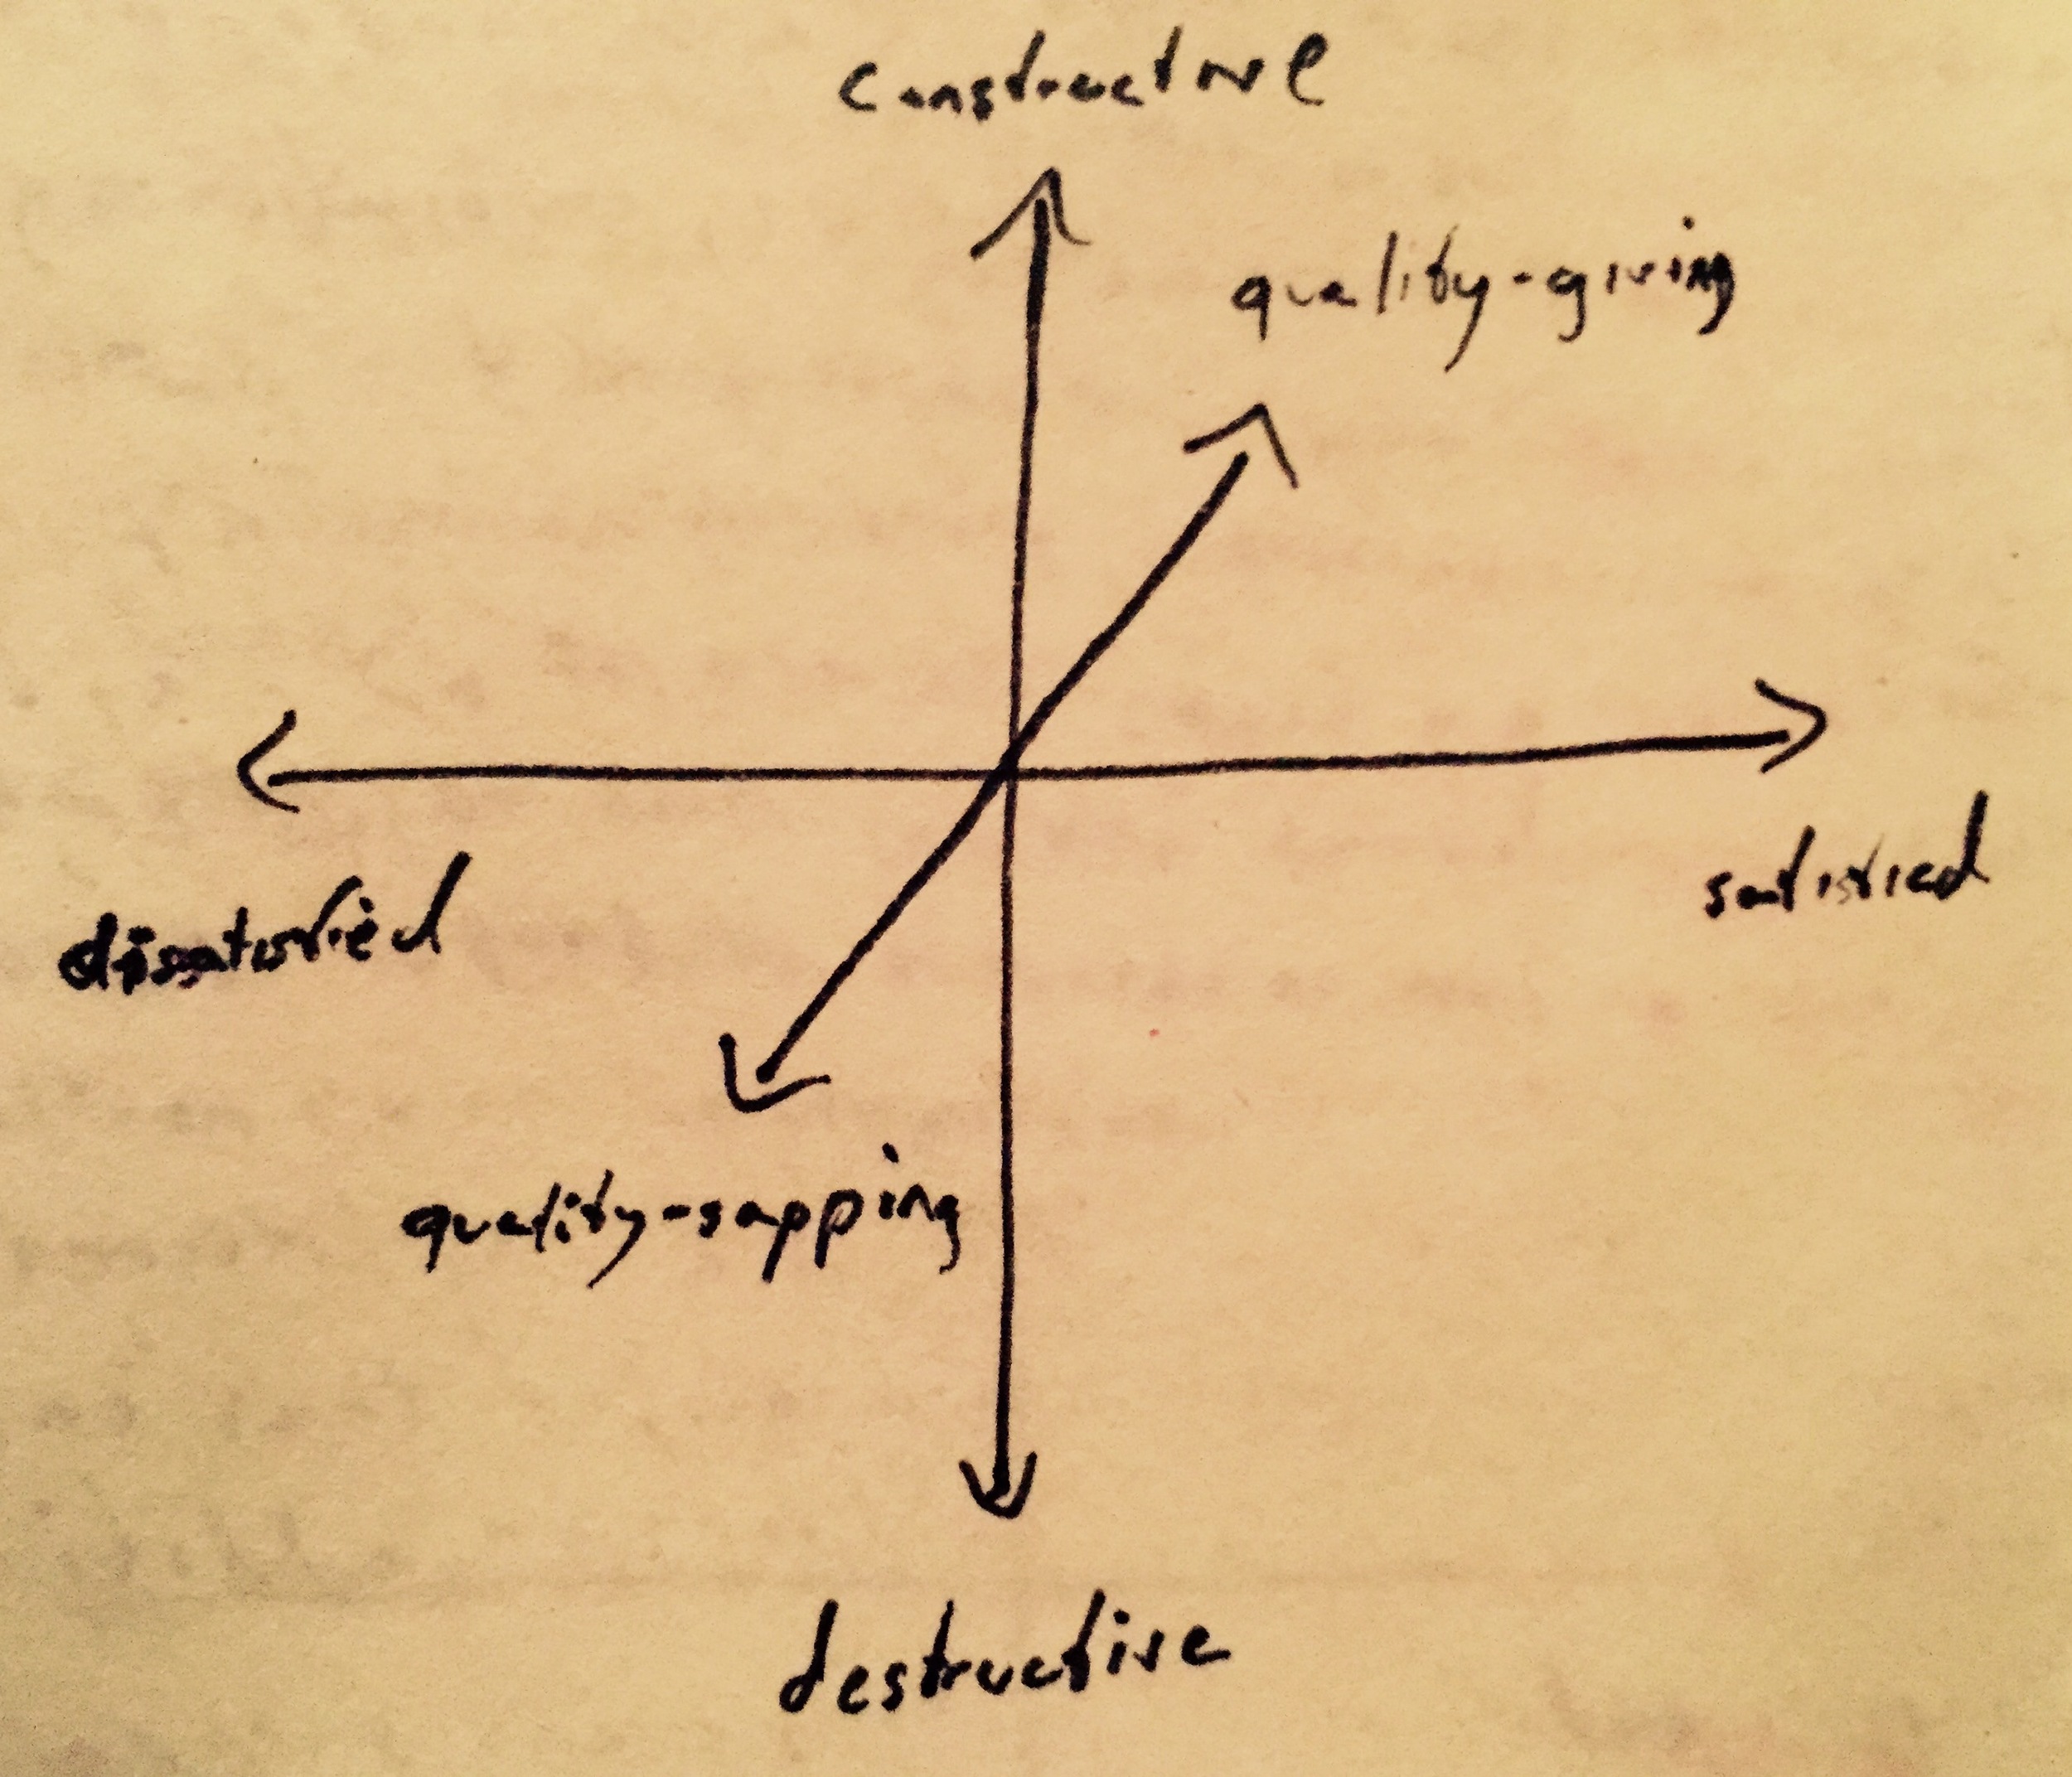 constructive
quality-giving
satisfied
dissatisfied
quality-sapping
destructive